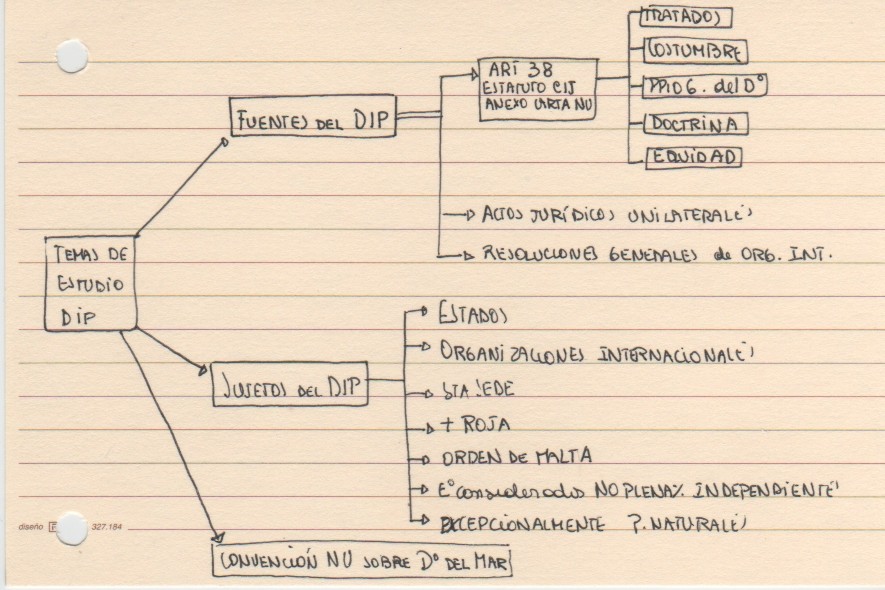 TRATADOS
COSTUMBRE
PPIO G. del Dº
DOCTRINA
EQUIDAD
ART 38
ESTATUTO CIJ
ANEXO CARTA NU
FUENTES DEL DIP
ACTOS JURÍDICOS UNILATERALES
RESOLUCIONES GENERALES de ORG. INT.
TEMAS DE
ESTUDIO
DIP
SUJETOS DEL DIP
ESTADOS
ORGANIZACIONES INTERNACIONALES
STA SEDE
+ ROJA
ORDEN DE MALTA
Eº considerados NO PLENA% INDEPENDIENTES
EXCEPCIONALMENTE P. NATURALES
diseño
327.184
CONVENCIÓN NU SOBRE Dº DEL MAR